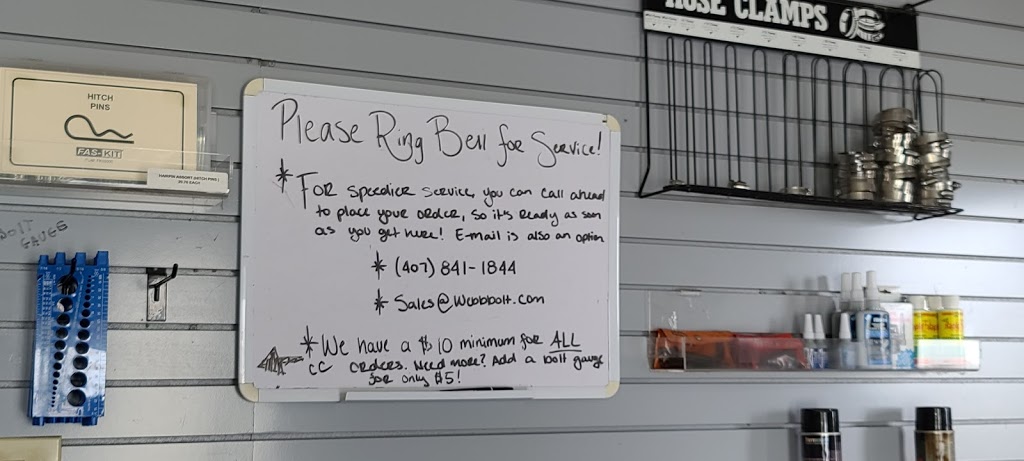 HOSE CLAMPS
HITCH
PINS
FAS-KIT
Please Ring Bell for Service!
* For speedier service, you can call ahead
to place your order, so it's ready as soon
as you get here! E-mail is also an option
* (407) 841-1844
* Sales@Webbbolt.com
* We have a $10 minimum for ALL
orders. Need more? Add a bolt gauge
for only $5!
CC
BOLT
GAUGE